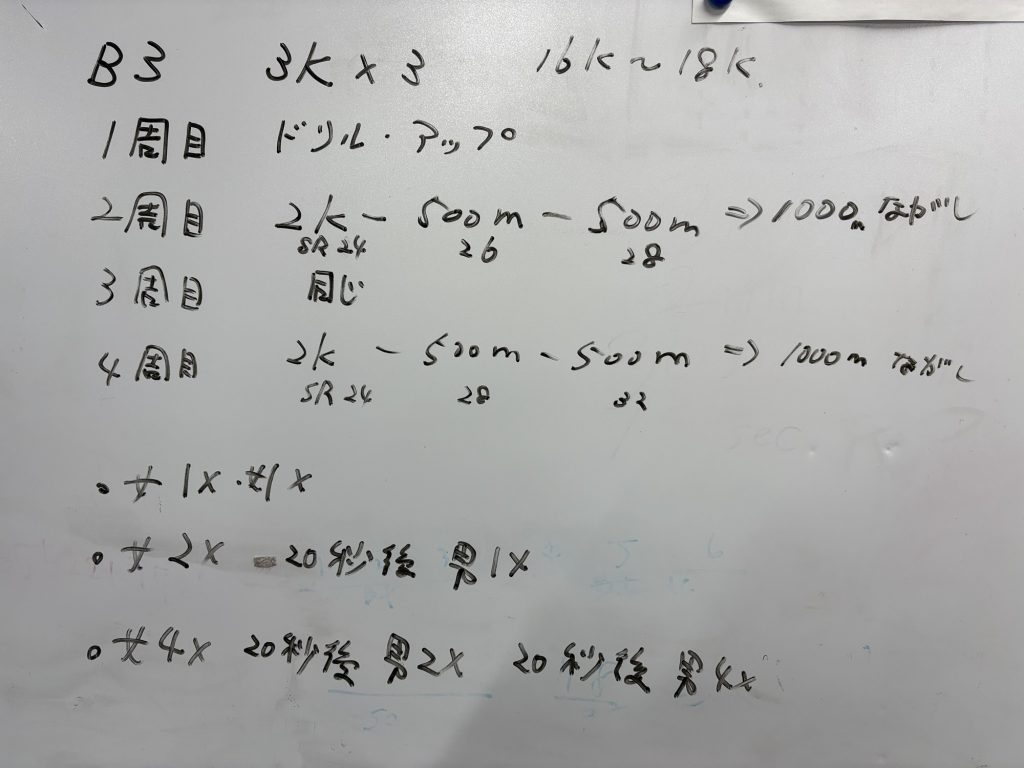 B3 3K × 3 16k～18k.
1周目 ドリル・アップ
2周目 2k － 500m － 500m ⇒ 1000m ながし
SR 24 26 28
3周目 同じ
4周目 2k － 500m － 500m ⇒ 1000m ながし
SR 24 28 32
・女1×・女1×
・女2× 20秒後 男1×
・女4× 20秒後 男2× 20秒後 男4×